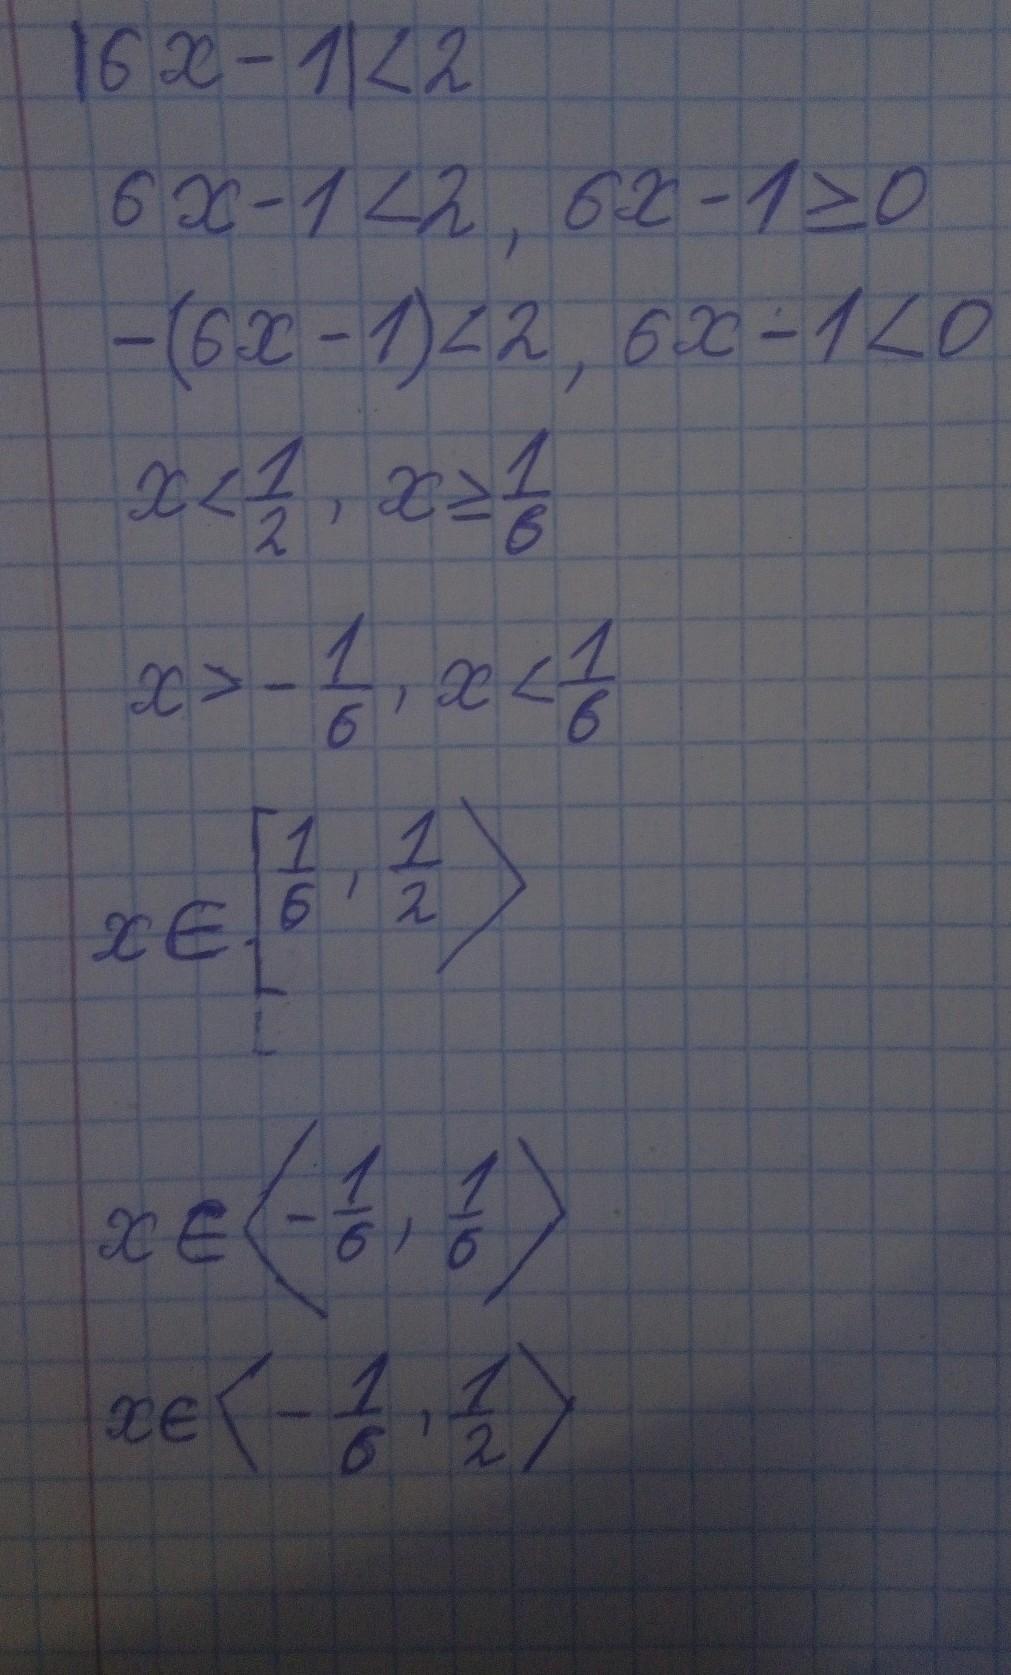 |6x-1|<2
6x-1<2, 6x-1≥0
-(6x-1)<2, 6x-1<0
x<1/2, x≥1/6
x>-1/6, x<1/6
x∈[1/6, 1/2⟩
x∈⟨-1/6, 1/6⟩
x∈⟨-1/6, 1/2⟩